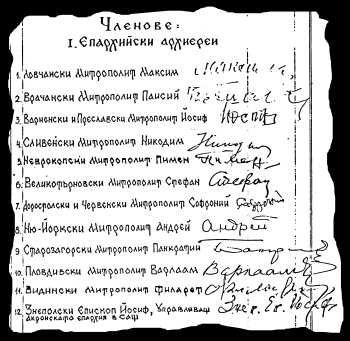 Членове:
I. Епархийски архиереи
1. Ловчански Митрополит Максим
2. Врачански Митрополит Паисий
3. Варненски и Преславски Митрополит Йосиф Йосиф
4. Сливенски Митрополит Никодим
5. Неврокопски Митрополит Пимен Пимен
6. Великотърновски Митрополит Стефан Стефан
7. Доростолски и Червенски Митрополит Софроний
8. Ню-Йоркски Митрополит Андрей Андрей
9. Старозагорски Митрополит Панкратий
10. Пловдивски Митрополит Варлаам Варлаам
11. Видински Митрополит Филарет
12. Знеполски Епископ Йосиф, Управляващ Знеп. Еп. Йосиф
Акронската епархия в САЩ